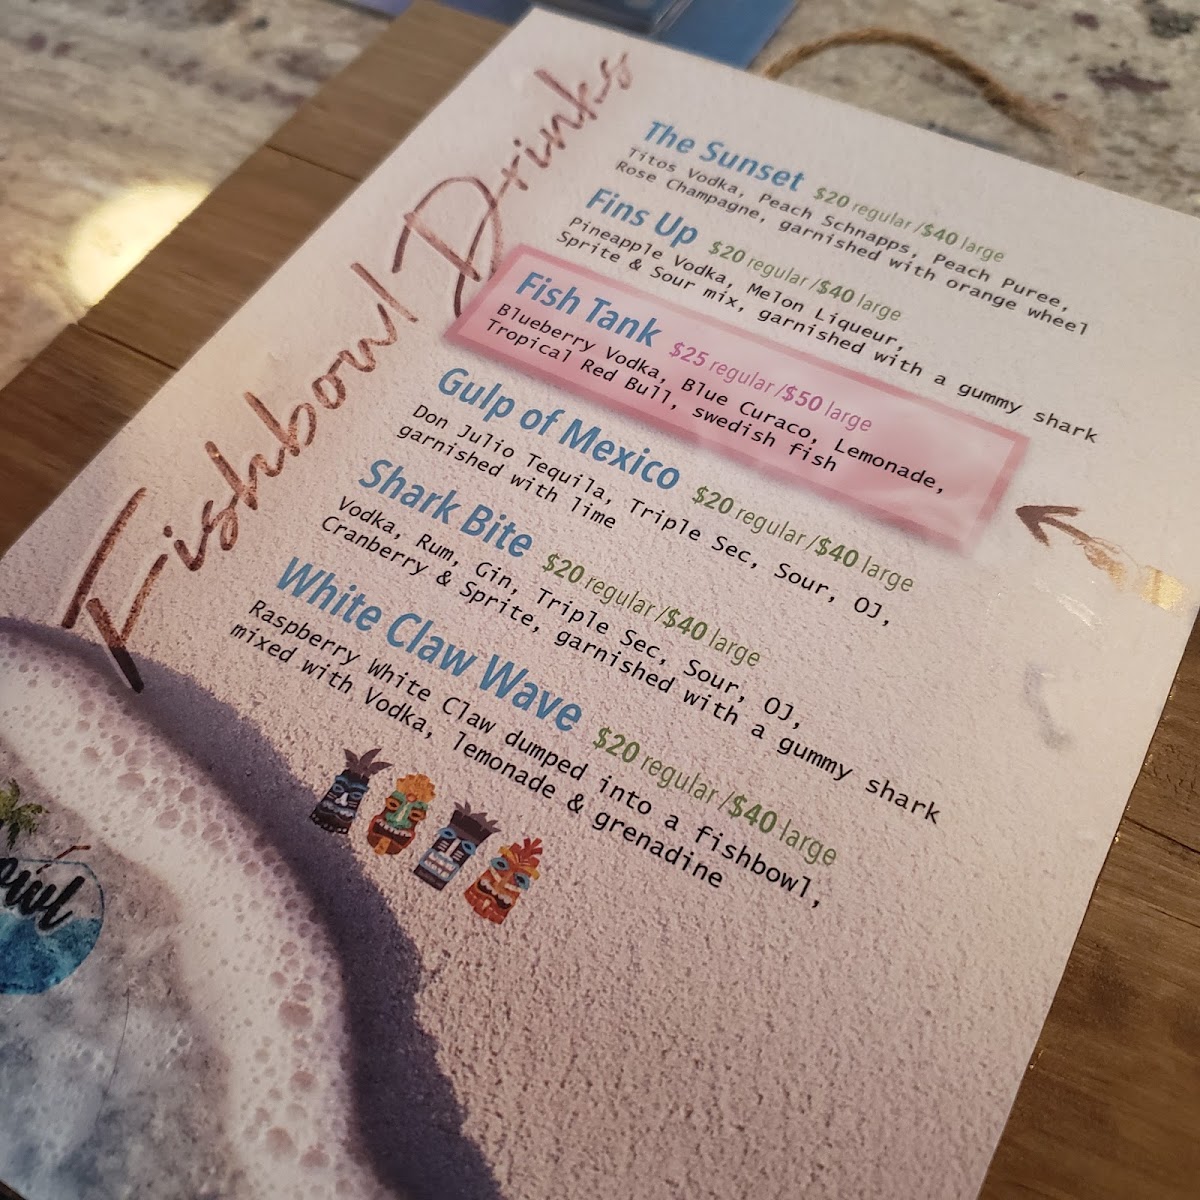 Fishbowl Drinks
The Sunset $20 regular/$40 large
Titos Vodka, Peach Schnapps, Peach Puree,
Rose Champagne, garnished with orange wheel
Fins Up $20 regular/$40 large
Pineapple Vodka, Melon Liqueur,
Sprite & Sour mix, garnished with a gummy shark
Fish Tank $25 regular/$50 large
Blueberry Vodka, Blue Curaco, Lemonade,
Tropical Red Bull, swedish fish
Gulp of Mexico $20 regular/$40 large
Don Julio Tequila, Triple Sec, Sour, OJ,
garnished with lime
Shark Bite $20 regular/$40 large
Vodka, Rum, Gin, Triple Sec, Sour, OJ,
Cranberry & Sprite, garnished with a gummy shark
White Claw Wave $20 regular/$40 large
Raspberry White Claw dumped into a fishbowl,
mixed with Vodka, lemonade & grenadine